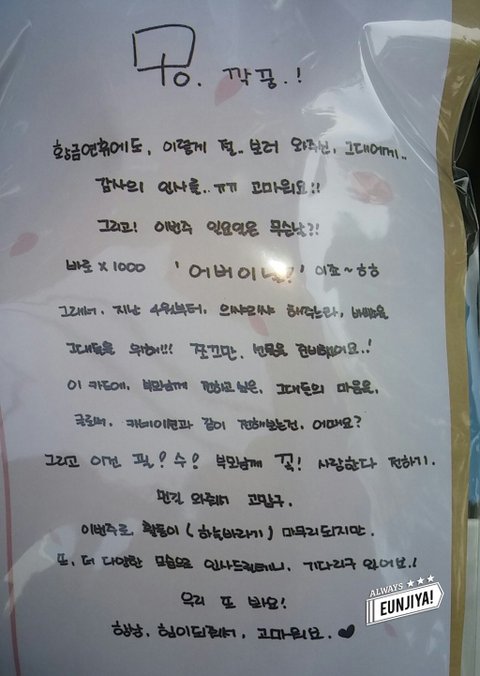 꿍. 깍꿍.!
황금연휴에도, 이렇게 절.. 보러 와주신, 그대에게..
감사의 인사를..ㅠㅠ 고마워요!!
그리고! 이번주 일요일은 무슨날?!
바로 x 1000 '어버이날!' 이죠~ㅎㅎ
그래서, 지난 4월부터, 으샤으샤 해주느라, 바빴을
그대들을 위해!!! 쪼끄만, 선물을 준비했어요..!
이 카드에, 부모님께 전하고 싶은, 그대들의 마음을,
글로써, 카네이션과 같이 전해보는건, 어때요?
그리고 이건 필! 수! 부모님께 꼭! 사랑한다 전하기.
먼길 와줘서 고맙구.
이번주로, 활동이 (하늘바라기) 마무리되지만,
또, 더 다양한 모습으로 인사드릴테니, 기다리구 있어보.!
우리 또 봐요!
항상, 힘이되줘서, 고마워요. ♥
ALWAYS ★★★
EUNJIYA!